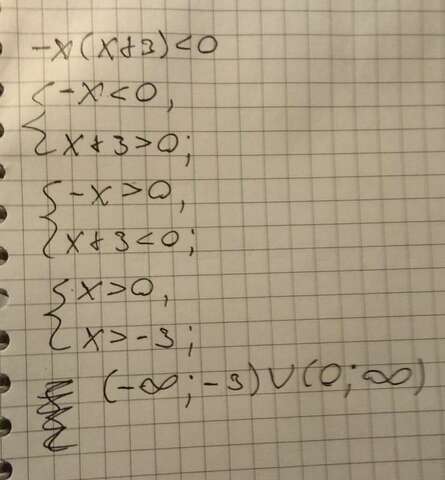 -x(x+3)<0
{-x<0,
x+3>0;
{-x>0,
x+3<0;
{x>0,
x>-3;
(-∞;-3)∪(0;∞)